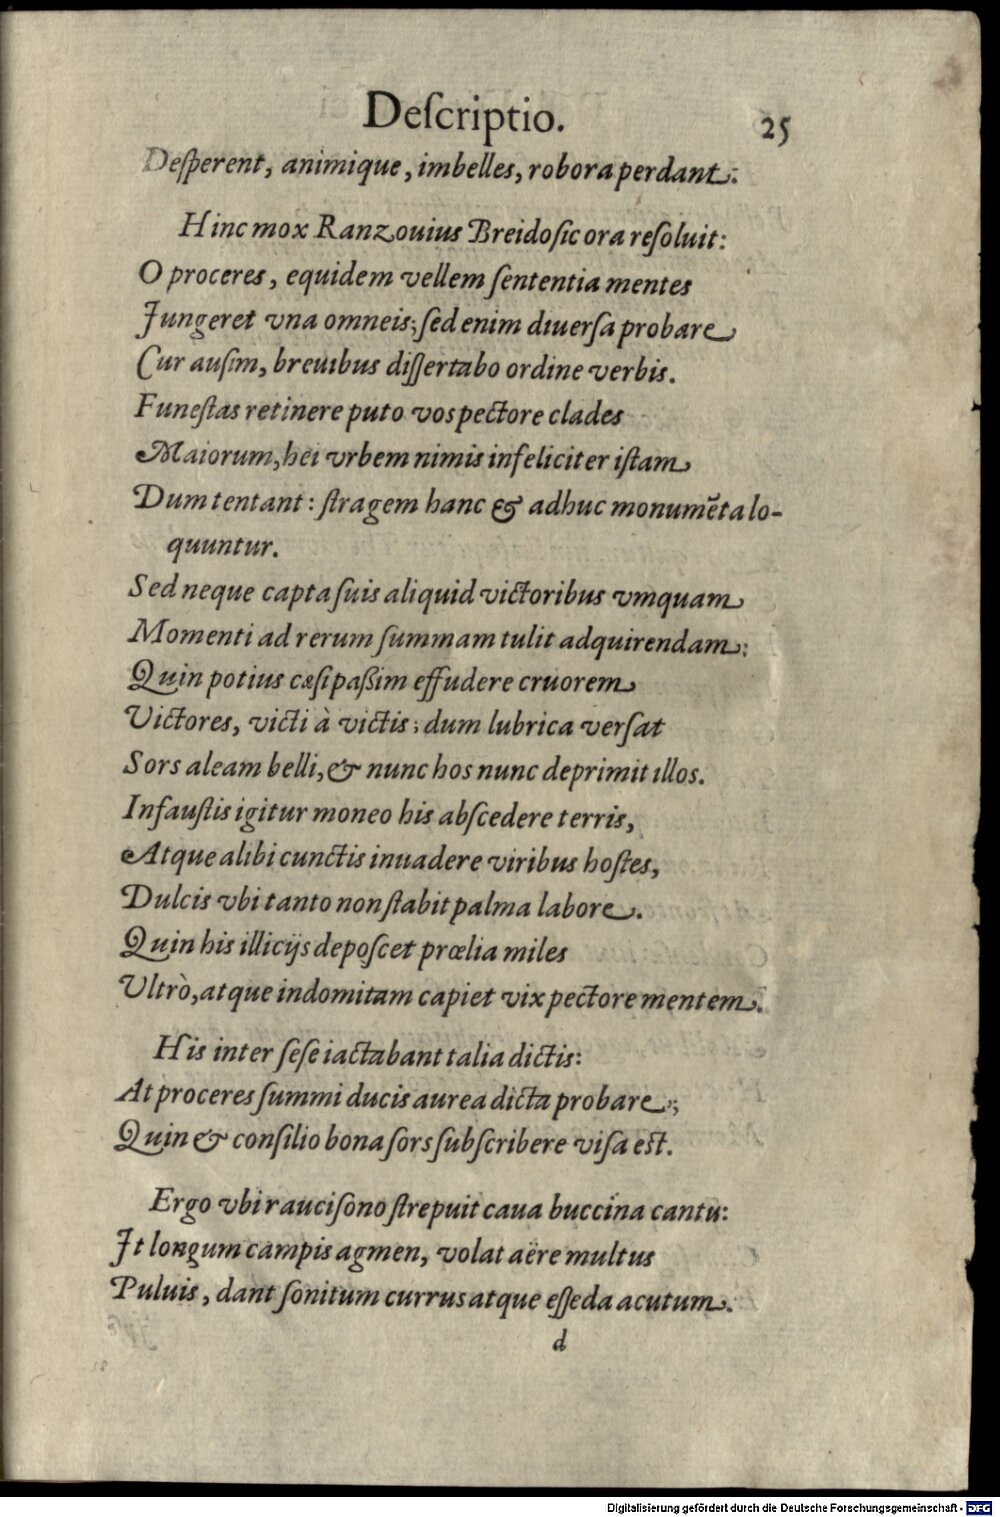 Deſcriptio.
25
Deſperent, animique, imbelles, robora perdant.
Hinc mox Ranzouius Breido ſic ora reſoluit:
O proceres, equidem vellem ſententia mentes
Jungeret vna omneis; ſed enim diuerſa probare
Cur auſim, breuibus diſſertabo ordine verbis.
Funeſtas retinere puto vos pectore clades
Maiorum, hei vrbem nimis infeliciter iſtam
Dum tentant: ſtragem hanc & adhuc monumẽta lo-
quuntur.
Sed neque capta ſuis aliquid victoribus vmquam
Momenti ad rerum ſummam tulit adquirendam:
Quin potius cæſi paßim effudere cruorem
Victores, victi à victis; dum lubrica verſat
Sors aleam belli, & nunc hos nunc deprimit illos.
Infauſtis igitur moneo his abſcedere terris,
Atque alibi cunctis inuadere viribus hoſtes,
Dulcis vbi tanto non ſtabit palma labore.
Quin his illicijs depoſcet prœlia miles
Vltrò, atque indomitam capiet vix pectore mentem.
His inter ſeſe iactabant talia dictis:
At proceres ſummi ducis aurea dicta probare;
Quin & conſilio bona ſors ſubſcribere viſa est.
Ergo vbi rauciſono ſtrepuit caua buccina cantu:
Jt longum campis agmen, volat aëre multus
Puluis, dant ſonitum currus atque eſſeda acutum.
d
Digitalisierung gefördert durch die Deutsche Forschungsgemeinschaft - DFG